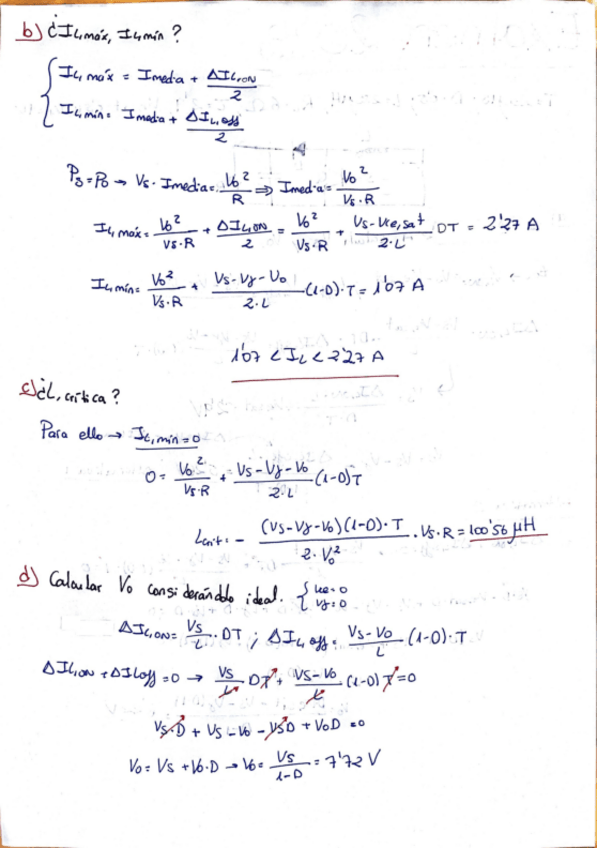 b) ¿IL,máx, IL,mín?
IL,máx = Imedia + ΔIL,ON/2
IL,mín = Imedia + ΔIL,off/2
Ps=Po → Vs · Imedia = Vo²/R ⇒ Imedia = Vo²/(Vs·R)
IL,máx = Vo²/(Vs·R) + ΔIL,ON/2 = Vo²/(Vs·R) + (Vs-Vce,sat)/(2·L) DT = 2'27 A
IL,mín = Vo²/(Vs·R) + (Vs-Vγ-Vo)/(2·L) ·(1-D)·T = 1'07 A
1'07 < IL < 2'27 A
c) ¿L,crítica?
Para ello → IL,mín=0
0 = Vo²/(Vs·R) + (Vs-Vγ-Vo)/(2·L) (1-D)T
Lcrit = - (Vs-Vγ-Vo)(1-D)·T/(2·Vo²) · Vs·R = 100'56 μH
d) Calcular Vo considerándolo ideal. { Vce=0
Vγ=0
ΔIL,ON = Vs/L · DT ; ΔIL,off = (Vs-Vo)/L · (1-D)·T
ΔIL,ON + ΔILoff = 0 → Vs/L DT + (Vs-Vo)/L (1-D) T = 0
Vs·D + Vs - Vo - VsD + VoD = 0
Vo = Vs + Vo·D → Vo = Vs/(1-D) = 7'72 V